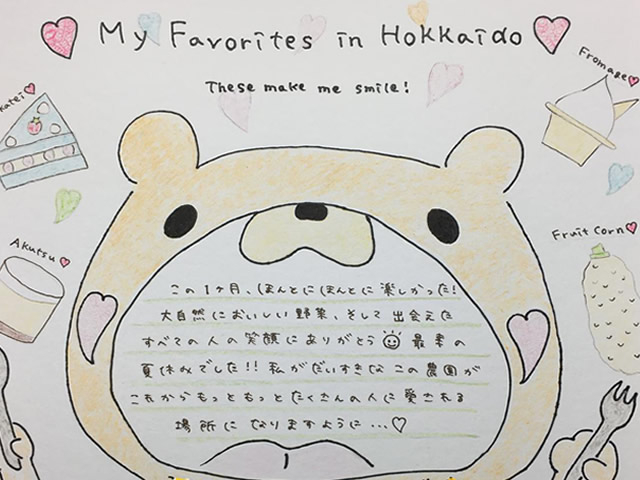 My Favorites in Hokkaido
These make me smile!
Fromage
katei
Akutsu
Fruit Corn
この1ヶ月、ほんとにほんとに楽しかった!
大自然においしい野菜、そして出会えた
すべての人の笑顔にありがとう 最幸の
夏休みでした!! 私がだいすきなこの農園が
これからもっともっとたくさんの人に愛される
場所になりますように...♡